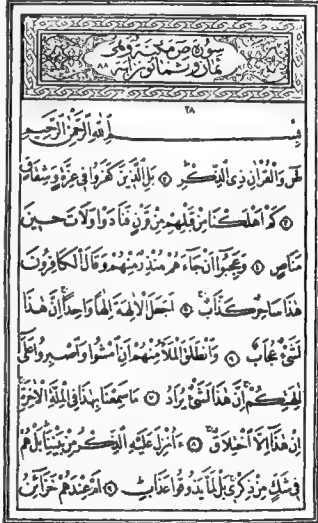 سورة ص مكية وهى
ثمان وثمانون اية ٨٨
٣٨
بِسْمِ اللَّهِ الرَّحْمٰنِ الرَّحِيمِ
صَ وَالْقُرْآنِ ذِى الذِّكْرِ ٢ بَلِ الَّذِينَ كَفَرُوا فِى عِزَّةٍ وَشِقَاقٍ
٣ كَمْ أَهْلَكْنَا مِنْ قَبْلِهِمْ مِنْ قَرْنٍ فَنَادَوْا وَلَاتَ حِينَ
مَنَاصٍ ٤ وَعَجِبُوا أَنْ جَاءَهُمْ مُنْذِرٌ مِنْهُمْ وَقَالَ الْكَافِرُونَ
هٰذَا سَاحِرٌ كَذَّابٌ ٥ أَجَعَلَ الْآلِهَةَ إِلٰهًا وَاحِدًا إِنَّ هٰذَا
لَشَىْءٌ عُجَابٌ ٦ وَانْطَلَقَ الْمَلَأُ مِنْهُمْ أَنِ امْشُوا وَاصْبِرُوا عَلَى
آلِهَتِكُمْ إِنَّ هٰذَا لَشَىْءٌ يُرَادُ ٧ مَا سَمِعْنَا بِهٰذَا فِى الْمِلَّةِ الْآخِرَةِ
إِنْ هٰذَا إِلَّا اخْتِلَاقٌ ٨ ءَأُنْزِلَ عَلَيْهِ الذِّكْرُ مِنْ بَيْنِنَا بَلْ هُمْ
فِى شَكٍّ مِنْ ذِكْرِى بَلْ لَمَّا يَذُوقُوا عَذَابِ ٩ أَمْ عِنْدَهُمْ خَزَائِنُ